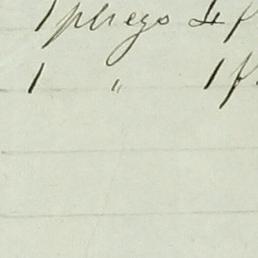 1 pliego 4 f
1 " 1 f.